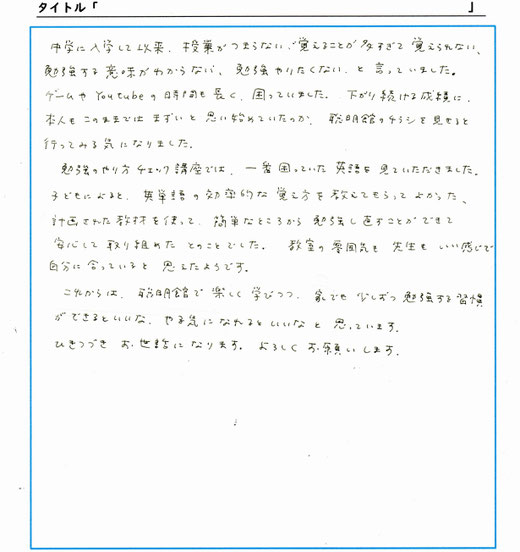 タイトル「 」
中学に入学して以来、授業がつまらない、覚えることが多すぎて覚えられない、
勉強する意味がわからない、勉強やりたくない、と言っていました。
ゲームやYoutubeの時間も長く、困っていました。下がり続ける成績に、
本人もこのままではまずいと思い始めていたのか、聡明館のチラシを見せると
行ってみる気になりました。
勉強のやり方チェック講座では、一番困っていた英語を見ていただきました。
子どもによると、英単語の効率的な覚え方を教えてもらってよかった、
計画された教材を使って、簡単なところから勉強し直すことができて
安心して取り組めたとのことでした。教室の雰囲気も先生もいい感じで
自分に合っていると思えたようです。
これからは、聡明館で楽しく学びつつ、家でも少しずつ勉強する習慣
ができるといいな、やる気になれるといいなと思っています。
ひきつづきお世話になります。よろしくお願いします。